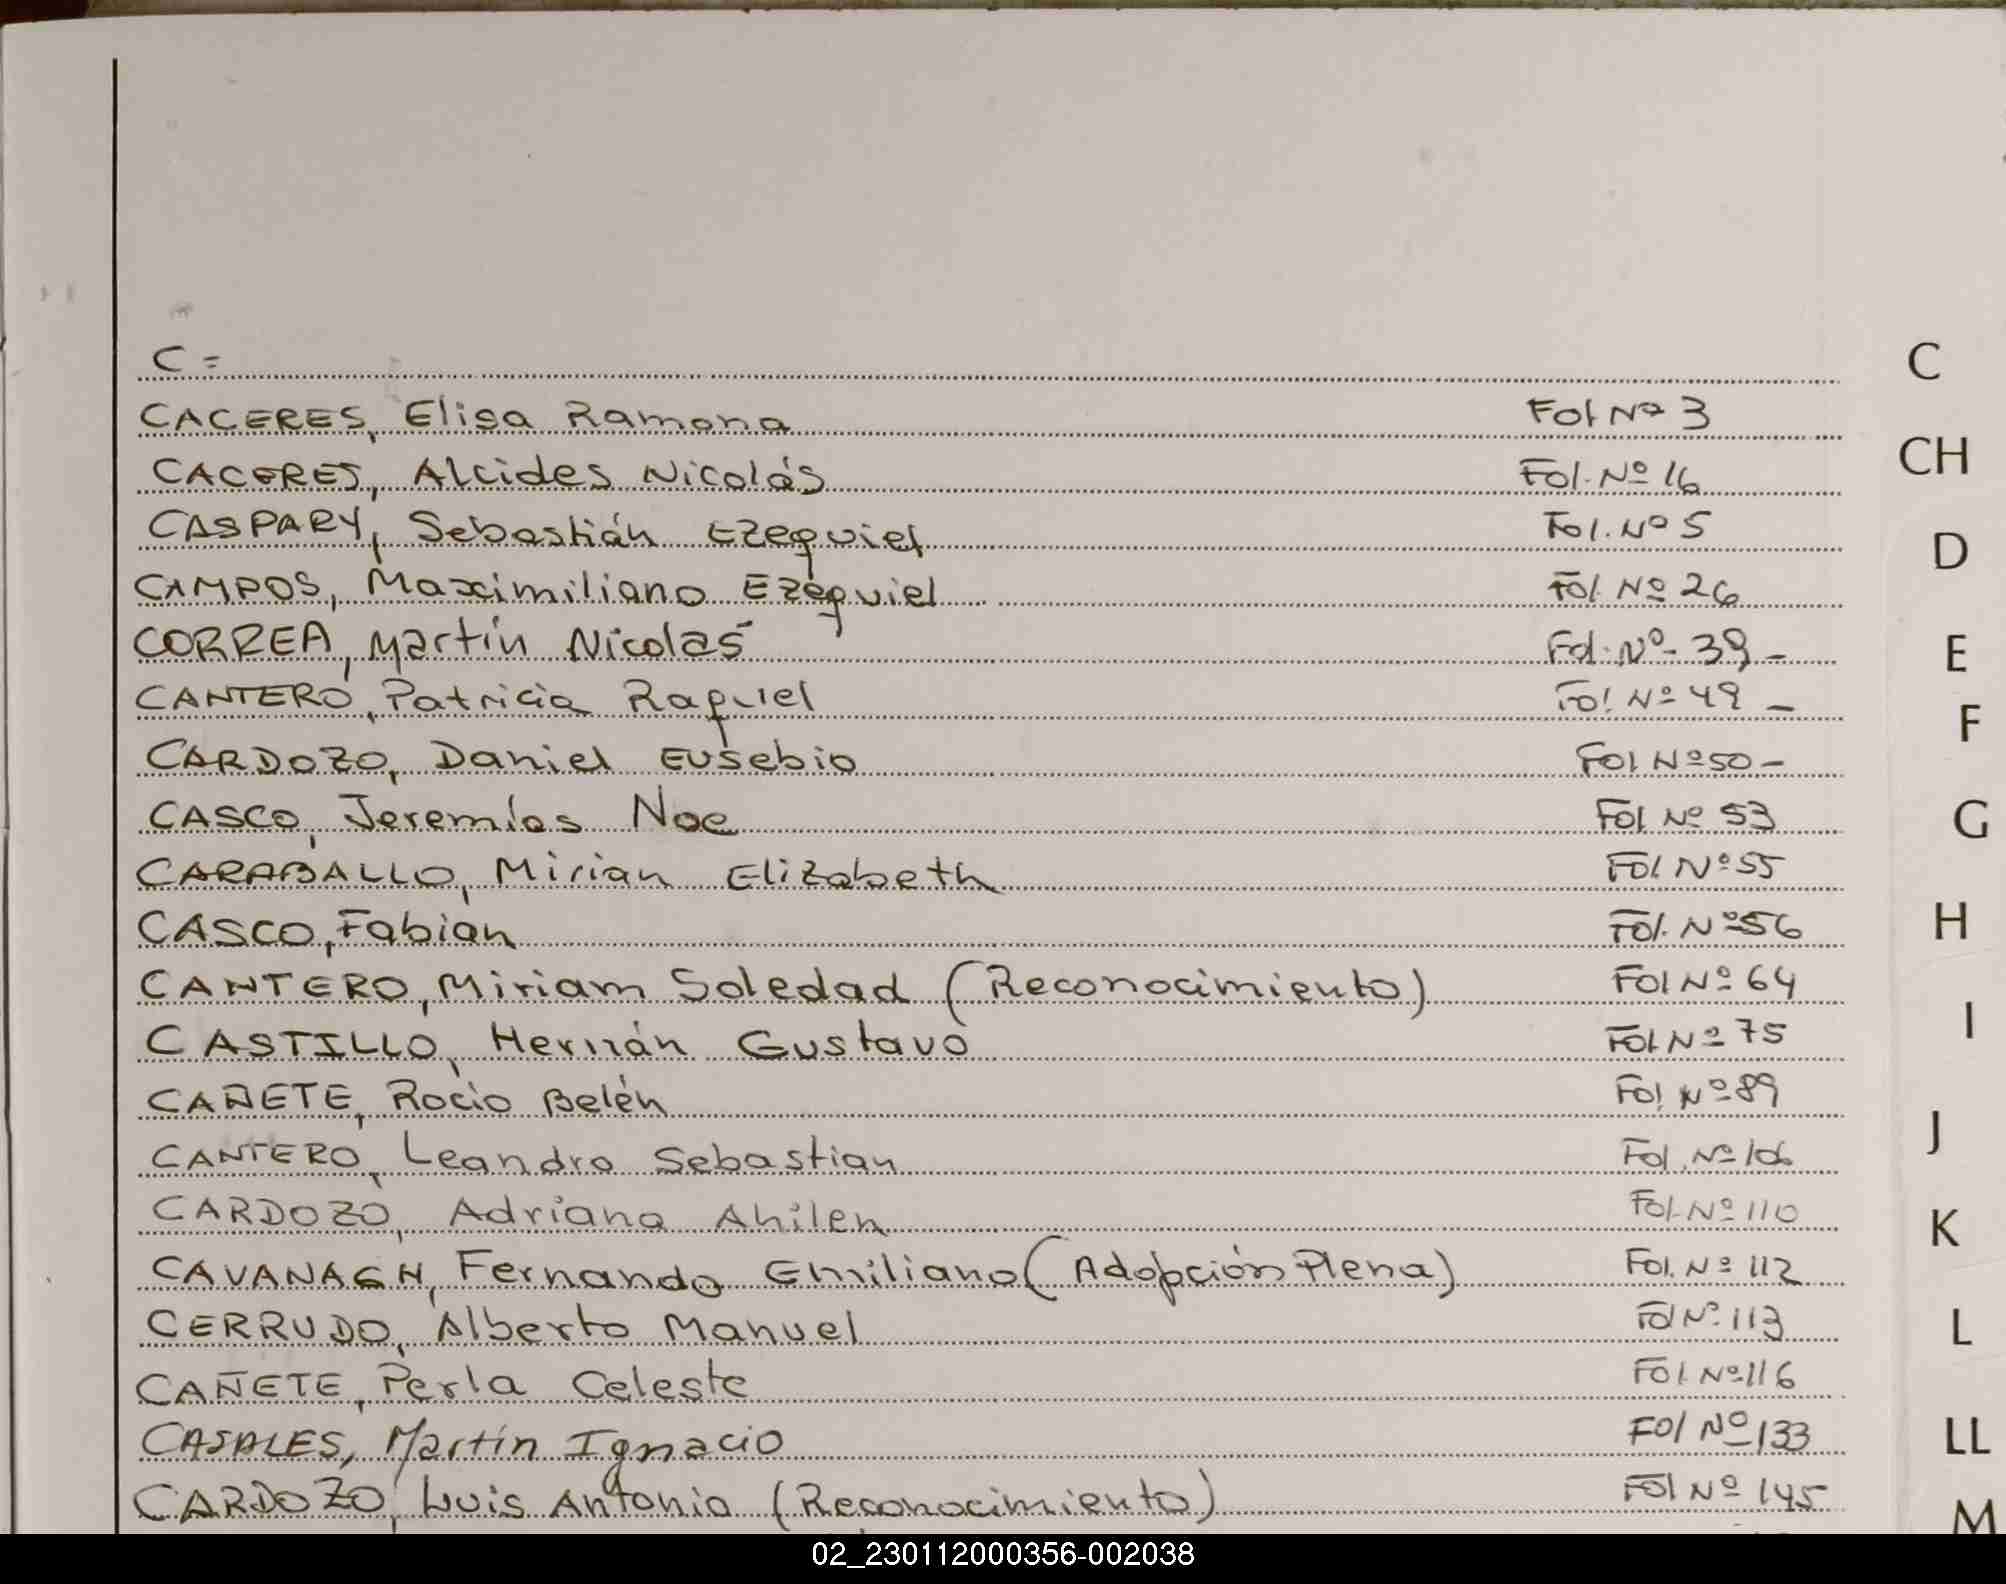 C =
CACERES, Elisa Ramona Fol Nº 3
CACERES, Alcides Nicolás Fol. Nº 16
CASPARY, Sebastián Ezequiel Fol. Nº 5
CAMPOS, Maximiliano Ezequiel Fol. Nº 26
CORREA, Martín Nicolás Fol. Nº 39 -
CANTERO, Patricia Raquel Fol Nº 49 -
CARDOZO, Daniel Eusebio Fol Nº 50 -
CASCO, Jeremías Noe Fol Nº 53
CARABALLO, Mirian Elizabeth Fol Nº 55
CASCO, Fabian Fol. Nº 56
CANTERO, Miriam Soledad (Reconocimiento) Fol Nº 64
CASTILLO, Hernán Gustavo Fol Nº 75
CAÑETE, Rocío Belén Fol Nº 89
CANTERO, Leandro Sebastian Fol. Nº 106
CARDOZO, Adriana Ahilen Fol. Nº 110
CAVANAGH, Fernando Emiliano (Adopción Plena) Fol. Nº 112
CERRUDO, Alberto Manuel Fol Nº 113
CAÑETE, Perla Celeste Fol. Nº 116
CASALES, Martín Ignacio Fol Nº 133
CARDOZO, Luis Antonio (Reconocimiento) Fol Nº 145
C
CH
D
E
F
G
H
I
J
K
L
LL
M
02_230112000356-002038